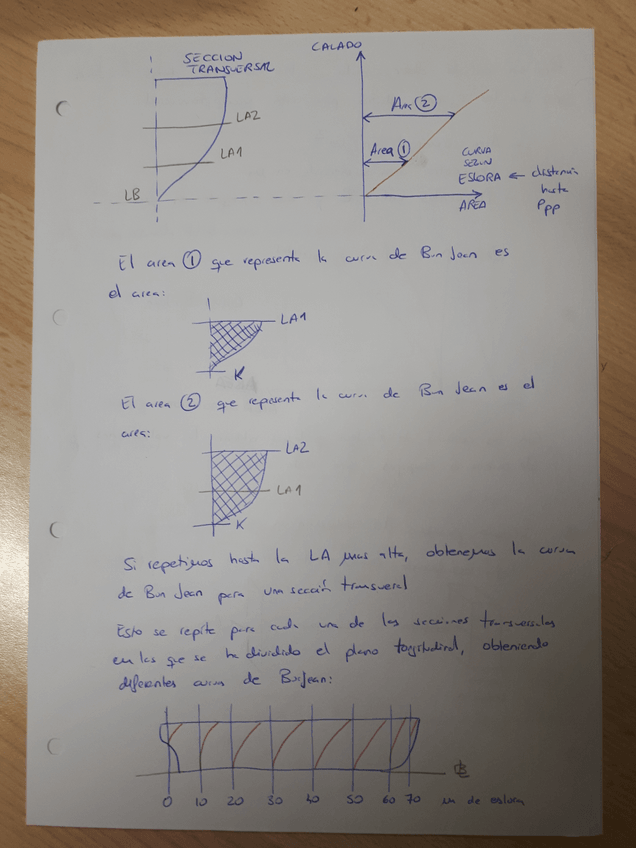 SECCION
TRANSVERSAL
LA2
LA1
LB
CALADO
Area ②
Area ①
CURVA
SEGUN
ESLORA ← distancia
hasta
Ppp
AREA
El area ① que representa la curva de Bon Jean es
el area:
LA1
K
El area ② que representa la curva de Bon Jean es el
area:
LA2
LA1
K
Si repetimos hasta la LA mas alta, obtenemos la curva
de Bon Jean para una sección transversal
Esto se repite para cada una de las secciones transversales
en las que se ha dividido el plano longitudinal, obteniendo
diferentes curvas de Bonjean:
0 10 20 30 40 50 60 70 m de eslora